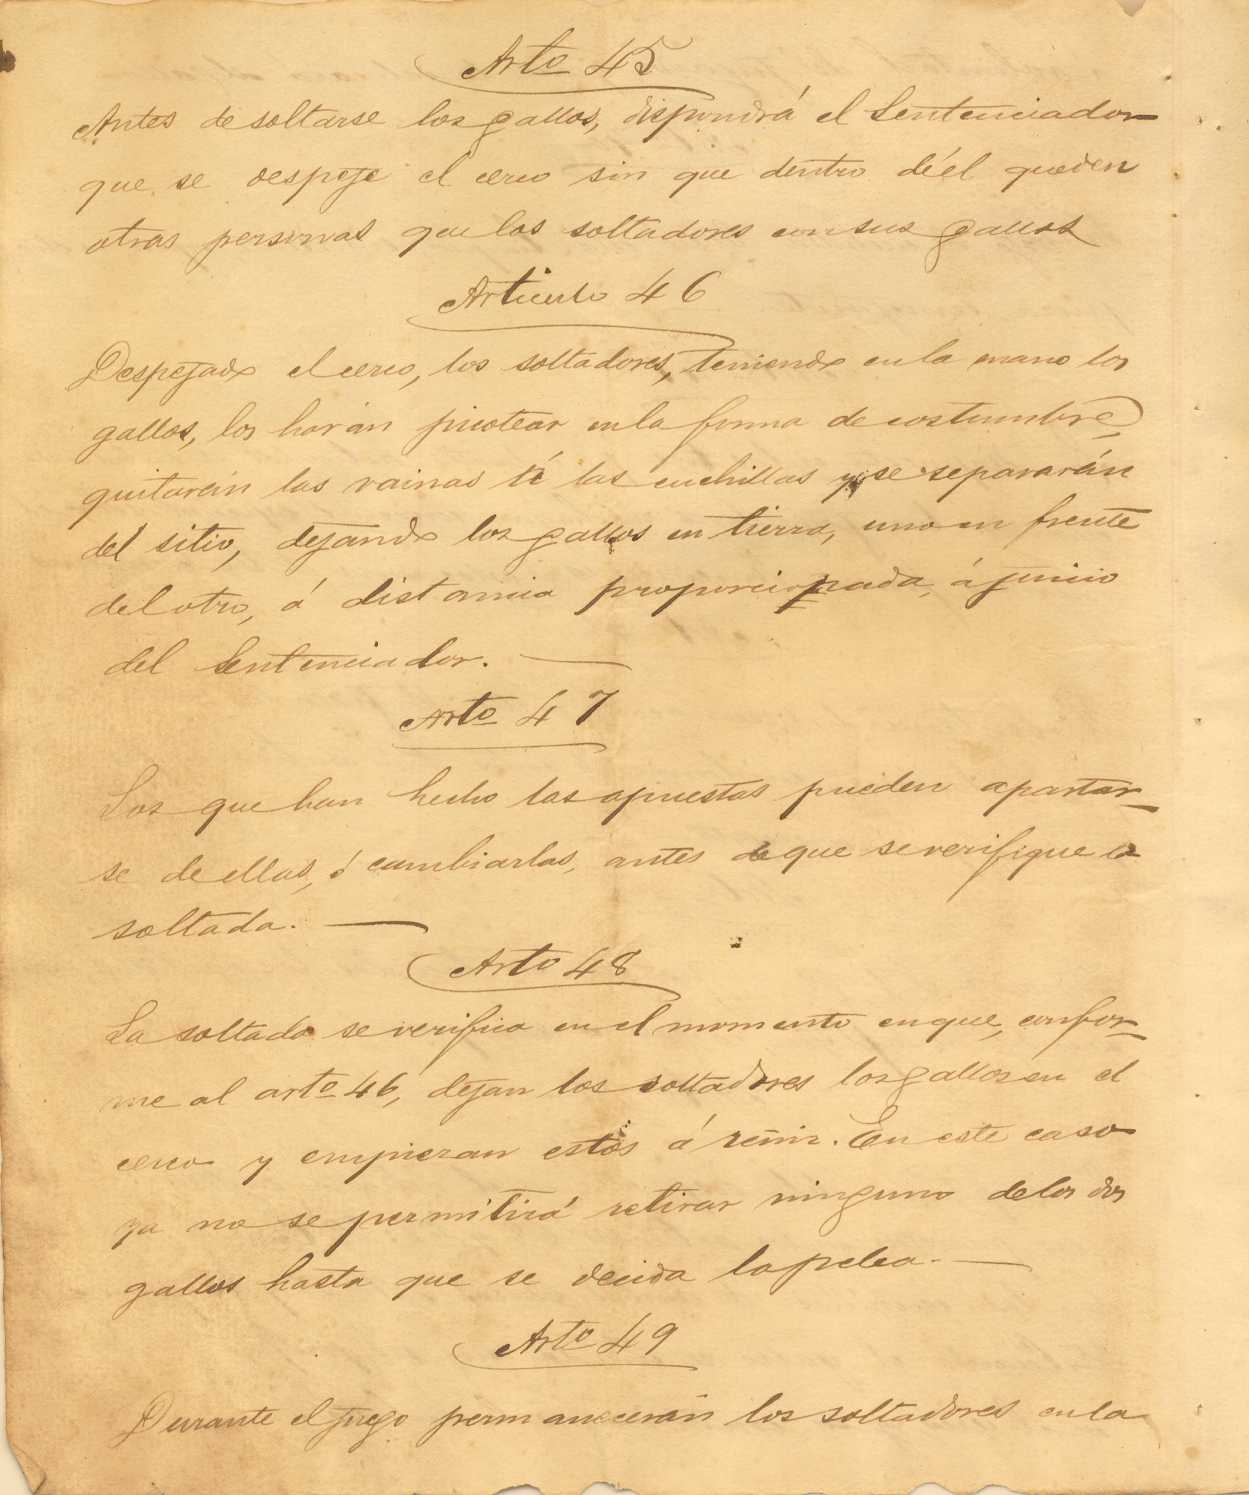 Arto 45
Antes de soltarse los gallos, dispondrá el Sentenciador
que se despeje el cerco sin que dentro dé él queden
otras personas que los soltadores con sus gallos
Articulo 46
Despejado el cerco, los soltadores, teniendo en la mano los
gallos, los harán picotear en la forma de costumbre
quitarán las vainas á las cuchillas y se separarán
del sitio, dejando los gallos en tierra, uno en frente
del otro, á distancia proporcionada, á juicio
del Sentenciador.
Arto 47
Los que han hecho las apuestas pueden apartar-
se de ellas, ó cambiarlas, antes de que se verifique la
soltada.
Arto 48
La soltada se verifica en el momento en que, confor-
me al arto 46, dejan los soltadores los gallos en el
cerco y empiezan estos á reñir. En este caso
ya no se permitirá retirar ninguno de los dos
gallos hasta que se decida la pelea.
Arto 49
Durante el juego permanecerán los soltadores en la